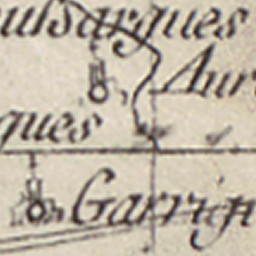 oussargues
Aur
gues
Garrig